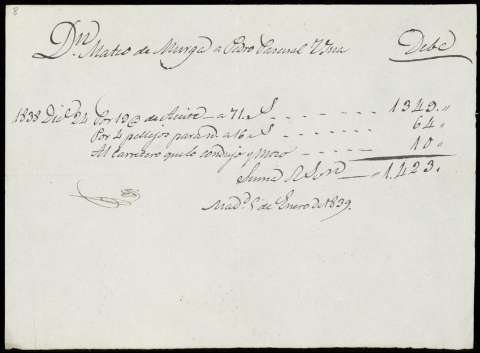 8
Dn. Mateo de Murga a Pedro Pascual Debe
1838 Dice. 24 Por 19 @ de Aceite a 71 1349.
Por 4 pellejos para id. a 16 64.
Al Carretero que lo condujo y Mozo 10.
Suma Rs. von 1.423.
Madd. de Enero de 1839.